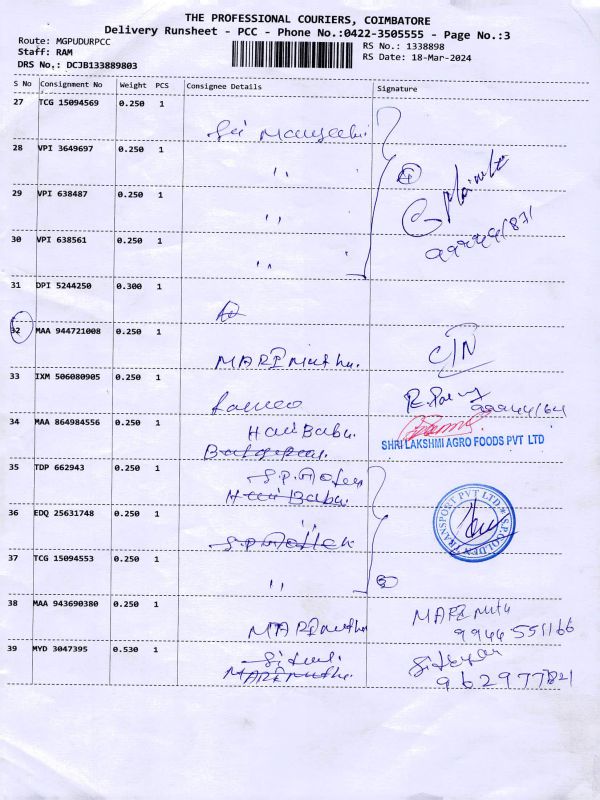 THE PROFESSIONAL COURIERS, COIMBATORE
Delivery Runsheet - PCC - Phone No.:0422-3505555 - Page No.:3
Route: MGPUDURPCC
Staff: RAM
DRS No.: DCJB133889803
RS No.: 1338898
RS Date: 18-Mar-2024
S No Consignment No Weight PCS Consignee Details Signature
27 TCG 15094569 0.250 1
28 VPI 3649697 0.250 1
,,
4
29 VPI 638487 0.250 1
,,
30 VPI 638561 0.250 1
,,
31 DPI 5244250 0.300 1
32 MAA 944721008 0.250 1
MARI Muthu.
33 IXM 506080905 0.250 1
34 MAA 864984556 0.250 1
Hari Babu.
SHRI LAKSHMI AGRO FOODS PVT LTD
35 TDP 662943 0.250 1
Hari Babu.
36 EDQ 25631748 0.250 1
,,
S.P.GOLDEN TRANSPORT PVT LTD
37 TCG 15094553 0.250 1
,,
3
38 MAA 943690380 0.250 1
MARI Muthu
MARI Mutu
9944 551166
39 MYD 3047395 0.530 1
MARI Muthu.